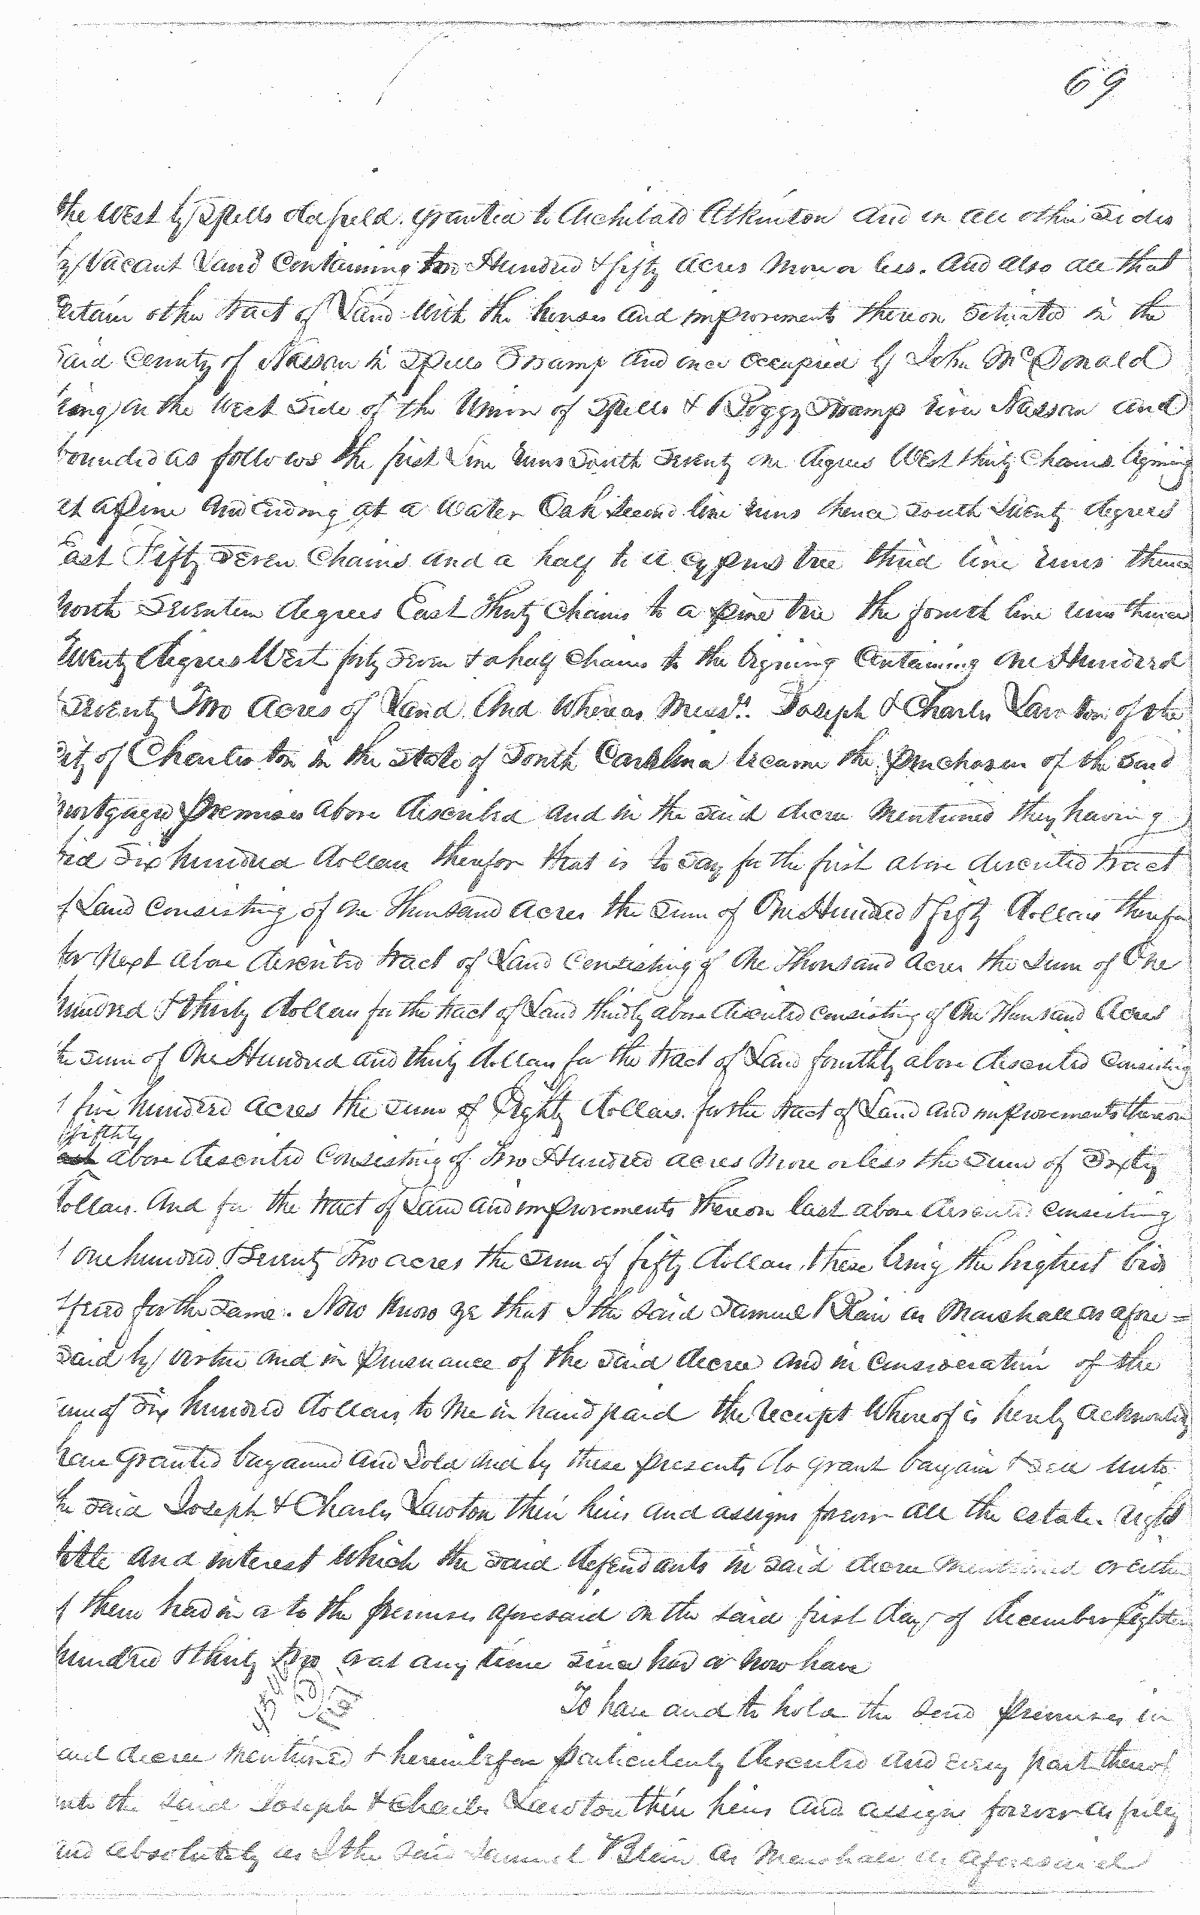 69
the West by Spells old field granted to Archibald Atkinson and on all other Sides
by Vacant Land Containing two Hundred & fifty acres more or less. And also all that
ertain other tract of Land with the houses and improvements thereon Situated in the
said County of Nassau in Spells Swamp and once occupied by John McDonald
ing on the West Side of the Union of Spells & Boggy Swamp River Nassau and
bounded as follows the first Line runs South Seventy one degrees West thirty Chains begining
at a pine and Ending at a Water Oak Second line runs thence South twenty degrees
East Fifty Seven Chains and a half to a cyprus tree third line runs thence
North Seventeen degrees East thirty Chains to a pine tree the fourth line runs thence
Twenty degrees West forty seven & a half Chains to the begining Containing One Hundred
Seventy Two Acres of Land And Whereas Messrs. Joseph & Charles Lawton of the
City of Charleston in the State of South Carolina became the purchaser of the said
mortgaged premises above described and in the said decree mentioned they having
bid Six hundred dollars therefor that is to say for the first above described tract
of Land consisting of one Thousand acres the Sum of One Hundred & fifty dollars therefor
for Next above described tract of Land consisting of One Thousand acres the Sum of One
hundred & thirty dollars for the tract of Land thirdly above described consisting of One Thousand Acres
the sum of One Hundred and thirty dollars for the tract of Land fourthly above described consisting
of five hundred acres the sum of Eighty dollars. for the tract of Land and improvements thereon
fifthly
above described Consisting of Two Hundred acres More or less the Sum of Sixty
dollars. And for the tract of Land and improvements thereon last above described consisting
of one hundred & Seventy Two acres the Sum of fifty dollars, these being the highest bids
offered for the same. Now Know ye that I the said Samuel Blair as Marshall as afore=
said by virtue and in pursuance of the said decree and in consideration of the
sum of Six hundred dollars to me in hand paid the receipt Whereof is hereby acknowledg
have granted bargained and Sold and by these presents do grant bargain & sell unto
the said Joseph & Charles Lawton their heirs and assigns forever all the estate. right
title and interest which the said defendants in said decree mentioned or either
of them had in or to the premises aforesaid on the said first day of december Eighteen
hundred & thirty two or at any time since had or now have
To have and to hold the said premises in
said decree mentioned & hereinbefore particularly described and every part thereof
unto the said Joseph & Charles Lawton their heirs and assigns forever as fully
and absolutely as I the said Samuel Blair as Marshall as aforesaid